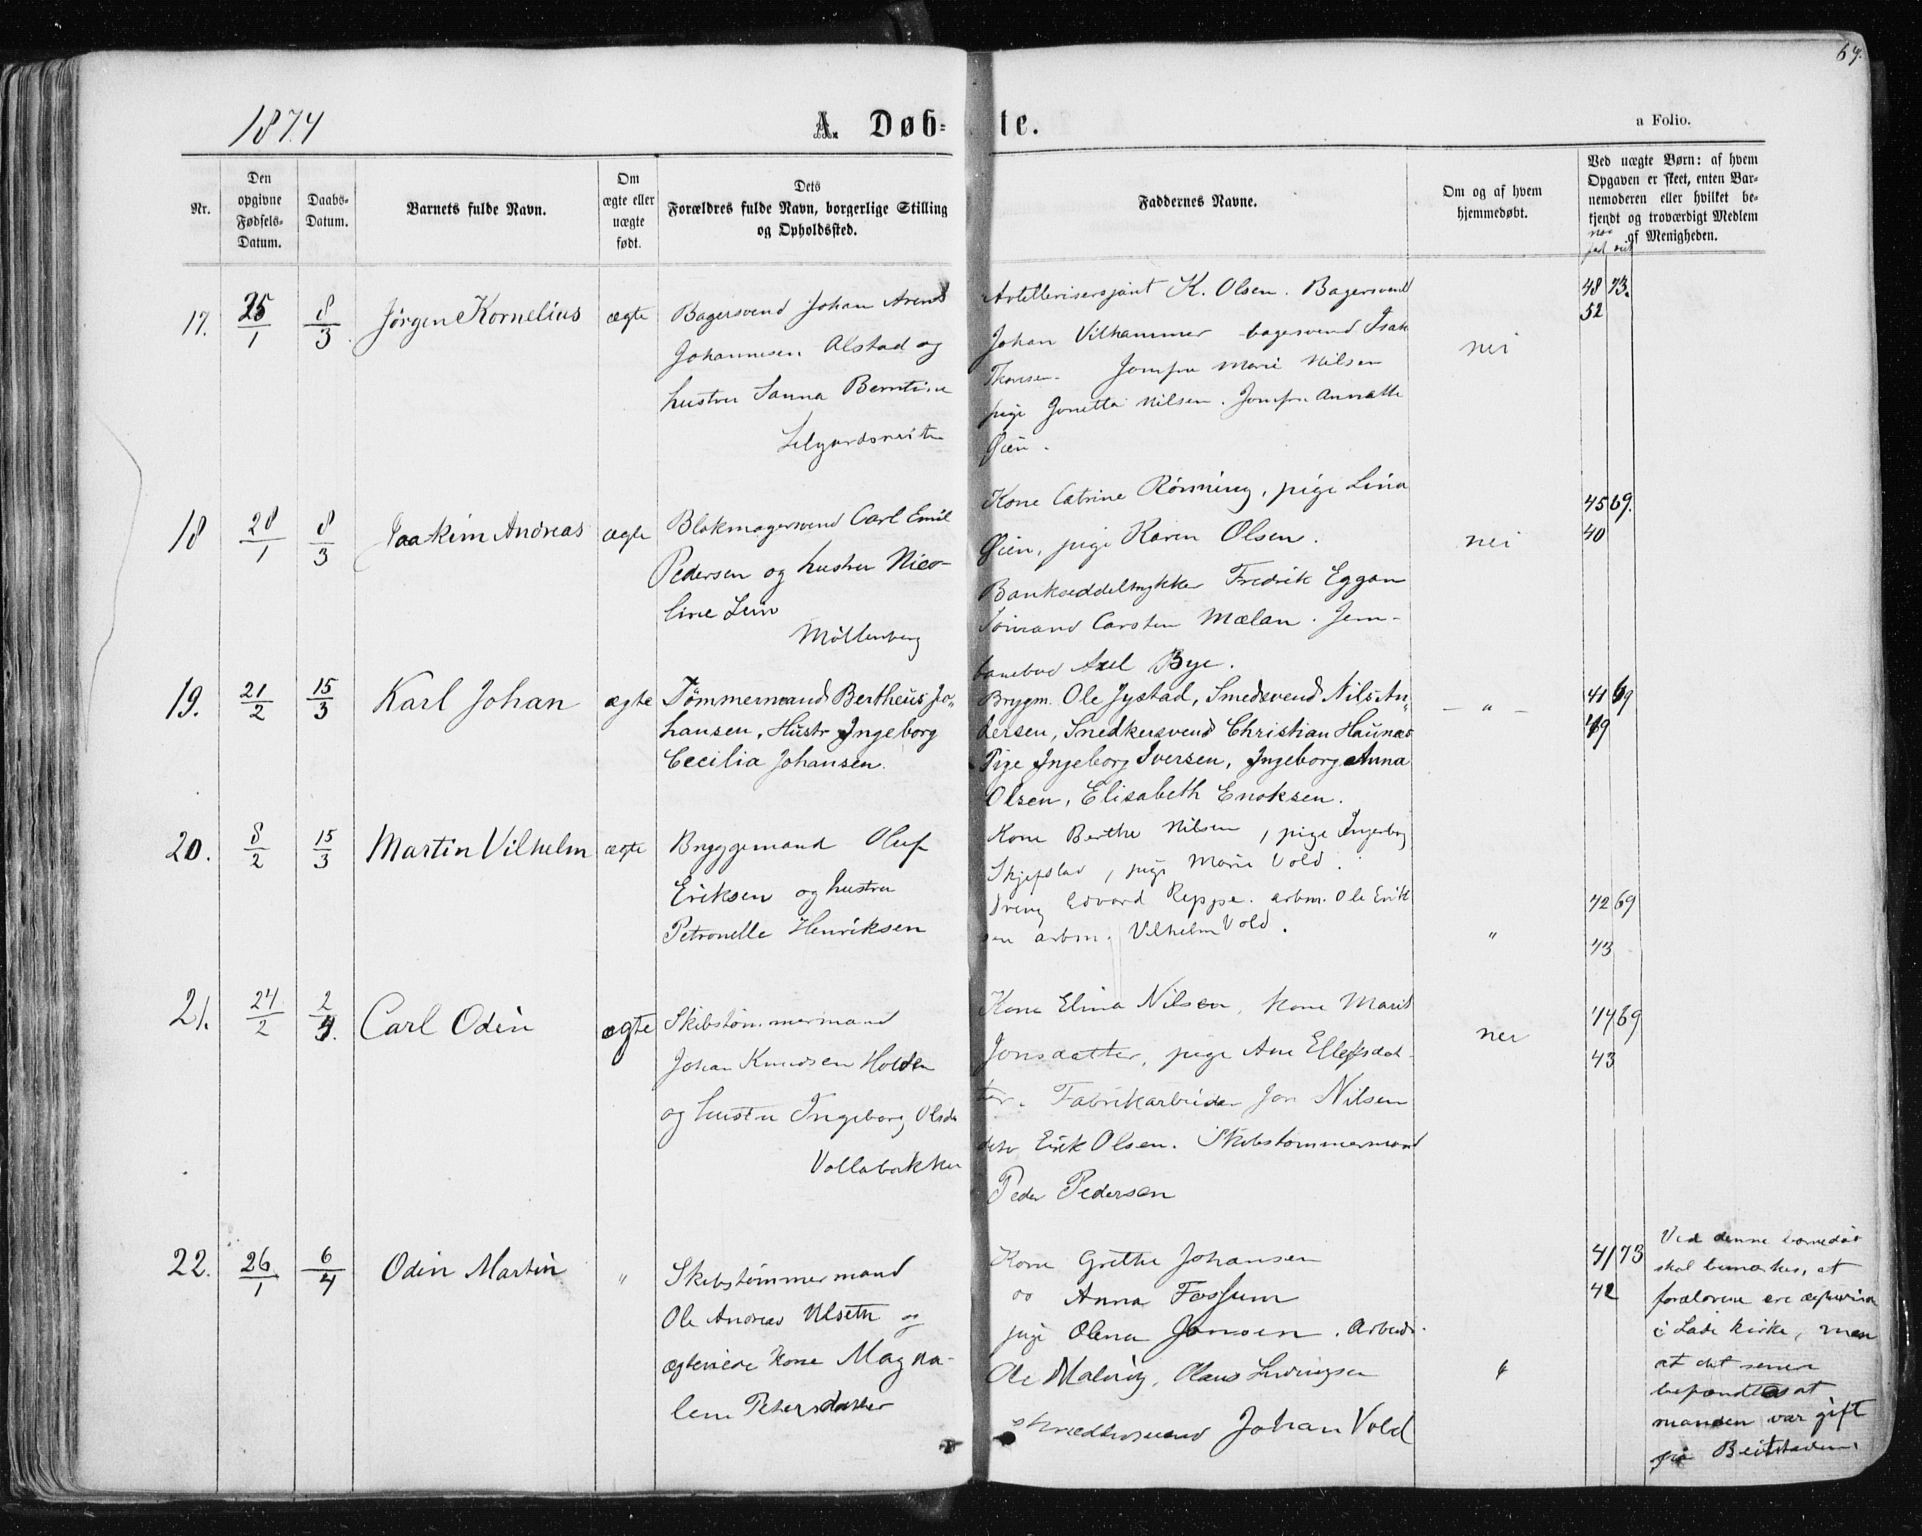 69.
1874
A. Døb-
te.
a Folio.
Nr.
Den opgivne Fødsels-Datum.
Daabs-Datum.
Barnets fulde Navn.
Om ægte eller uægte født.
Dets Forældres fulde Navn, borgerlige Stilling og Opholdssted.
Faddernes Navne.
Om og af hvem hjemmedøbt.
Ved uægte Børn: af hvem Opgaven er skeet, enten Barnemoderen eller hvilket bekjendt og troværdigt Medlem af Menigheden.
17. 25/1 8/3 Jörgen Kornelius ægte
Bagersvend Johan Arent
Johannesen Alstad og
hustru Sanna Berntine
Artillerisersjant K. Olsen. Bagersvend
Johan Vilhammer bagersvend Isak
Thorsen. Jomfru Marie Nilsen
pige Jonetta Nilsen. Jomfr. Annette
Øien.
nei
48 73.
52
18 28/1 8/3 Joakim Andreas ægte
Blokmagersvend Carl Emil
Pedersen og hustru Nico-
line Lein
Möllenberg
Kone Catrine Rönning, pige Lina
Øien, pige Karen Olsen.
Bankseddeltrykker Fredrik Eggan
Sömand Carsten Mælan. Jern-
banebud Axel Bye.
nei
45 69.
40
19. 21/2 15/3 Karl Johan ægte
Tömmermand Bertheus Jo-
hansen, Hustr Ingeborg
Cecilia Johansen.
Brygm. Ole Jystad, Smedsvend Nils An-
dersen, Snedkersvend Christian Haunæs
Pige Ingeborg Iversen, Ingeborg Anna
Olsen, Elisabeth Enoksen.
— „ —
41 69
49
20. 8/2 15/3 Martin Vilhelm ægte
Bryggemand Oluf
Eriksen og hustru
Petronelle Henriksen
Kone Berthe Nilsen, pige Ingeborg
Skjefstad, pige Marie Vold.
Dreng Edvard Reppe. arbm. Ole Erik
sen arbm. Vilhelm Vold.
„
42 69
43
21. 24/2 2/4. Carl Odin ægte
Skibstömmermand
Johan Knudsen Holden
og hustru Ingeborg Olsdr
Vollabakken
Kone Elina Nilsen, kone Marit
Jonsdatter, pige Ane Ellefsdat-
ter. Fabrikarbeider Jon Nilsen
dito Erik Olsen. Skibstömmermand
Peder Pedersen
nei
44 69
43
22. 26/1 6/4 Odin Martin „
Skibstömmermand
Ole Andreas Ulseth og
ægteviede Kone Magda-
lena Petersdatter
Kone Grethe Johansen
do Anna Fossum
pige Olena Jonsen. Arbeid.
Ole Malvig, Olaus Ludvigsen
Johan Vold
„
41 73
42
Ved denne barnedåb
skal bemærkes, at
forældrene ere ægteviede
i Lade kirke, men
at det senere
befandtes at
manden var gift
på Beitstaden.